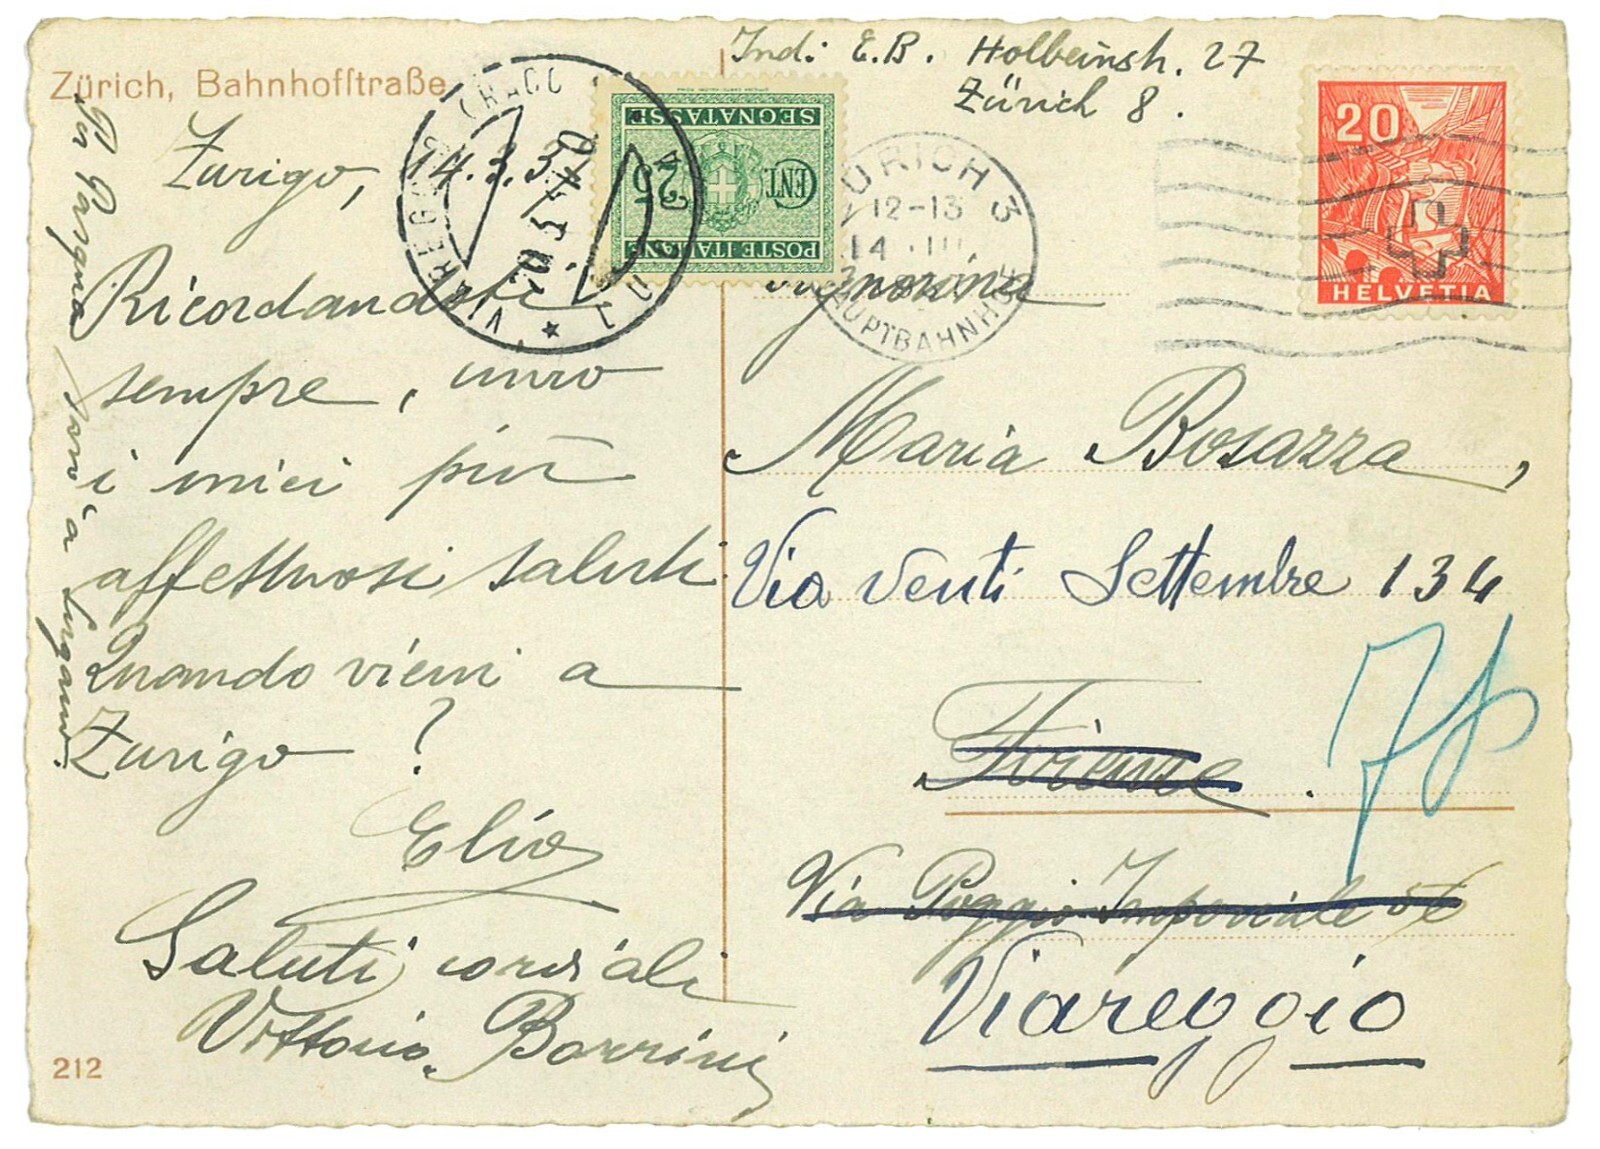 Zürich, Bahnhofſtraße
Ind: E.B. Holbeinstr. 27
Zürich 8.
Zurigo, 14.3.37
Ricordandoti
sempre, invio
i miei più
affettuosi saluti
Quando vieni a
Zurigo ?
Elio
Saluti cordiali
Vittorio Borrini
Pasqua sarò a Lugano.
212
POSTE ITALIANE
CENT. 25
SEGNATASSE
VIAREGGIO
ZÜRICH 3
12-13
14.III
HAUPTBAHNHOF
20
HELVETIA
Signorina
Maria Bosazza,
Via Venti Settembre 134
Firenze.
Via Poggio Imperiale
Viareggio